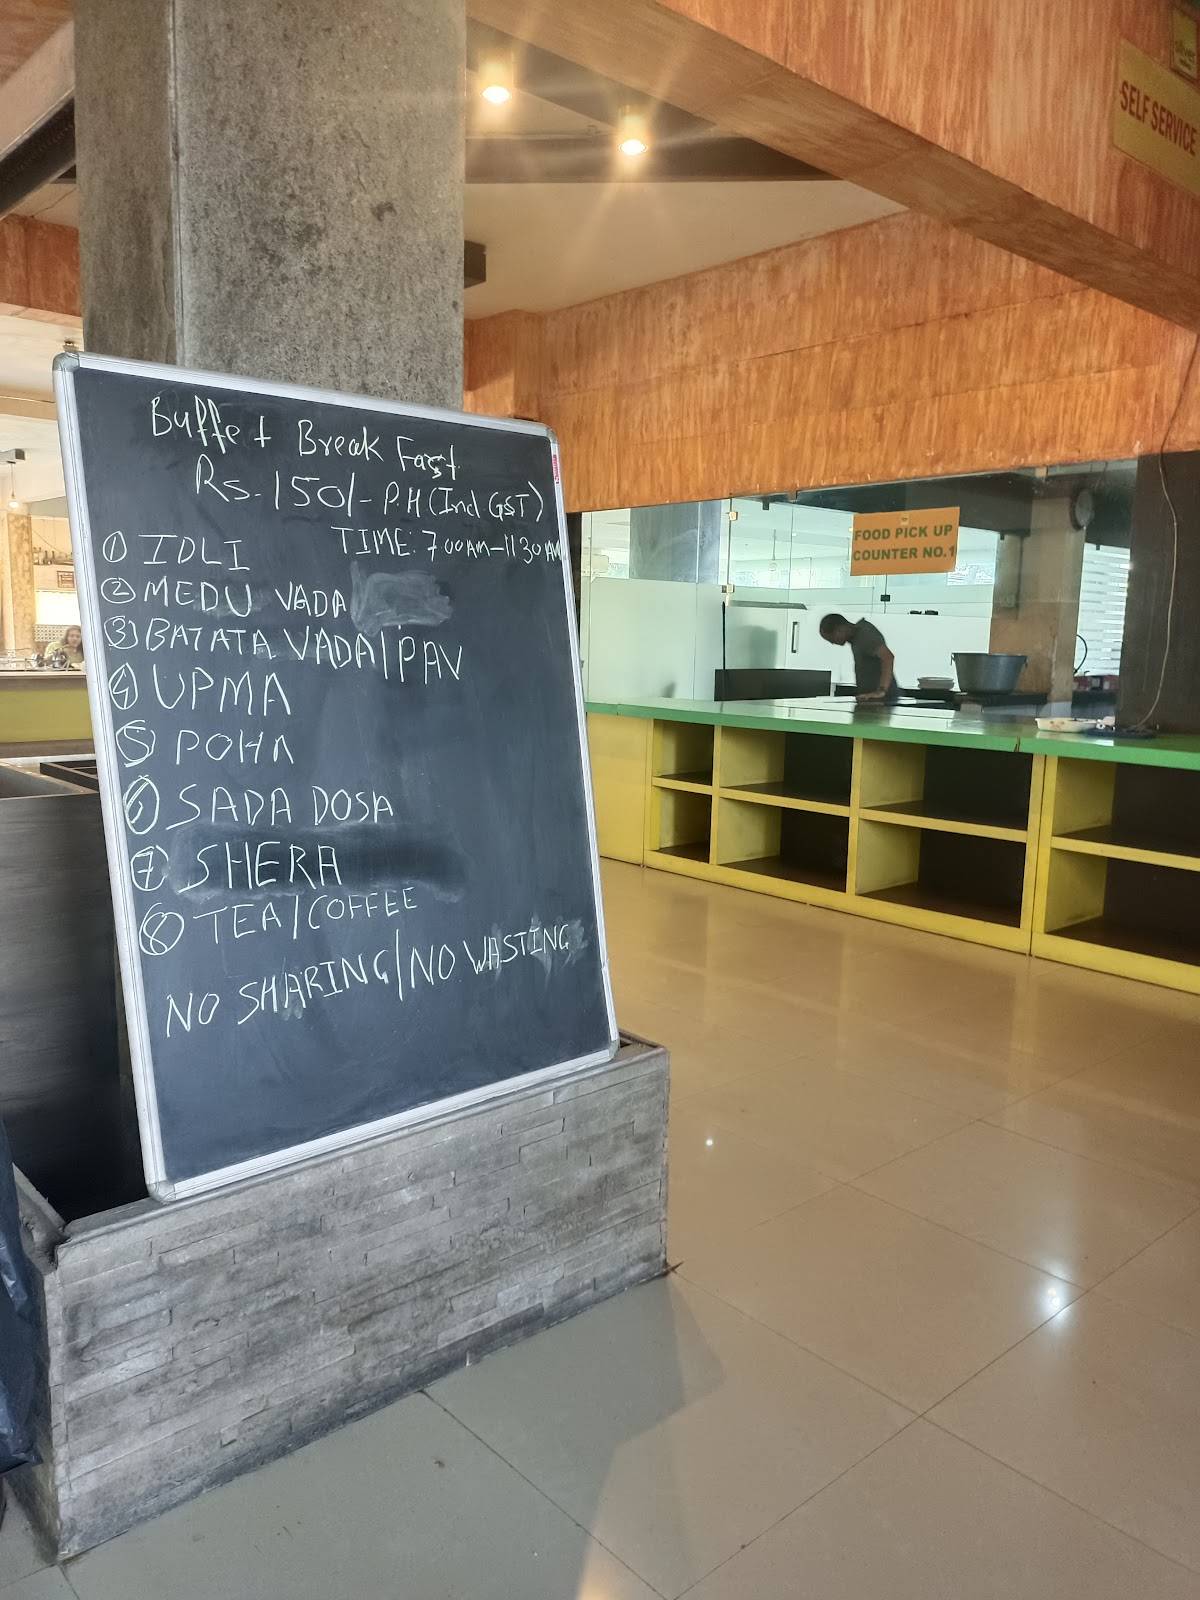 Buffet Break Fast
Rs. 150/- P.H (Incl GST)
TIME: 7.00AM-11 30 AM
① IDLI
② MEDU VADA
③ BATATA VADA/PAV
④ UPMA
⑤ POHA
⑥ SADA DOSA
⑦ SHERA
⑧ TEA/COFFEE
NO SHARING/NO WASTING
SELF SERVICE
FOOD PICK UP
COUNTER NO.1